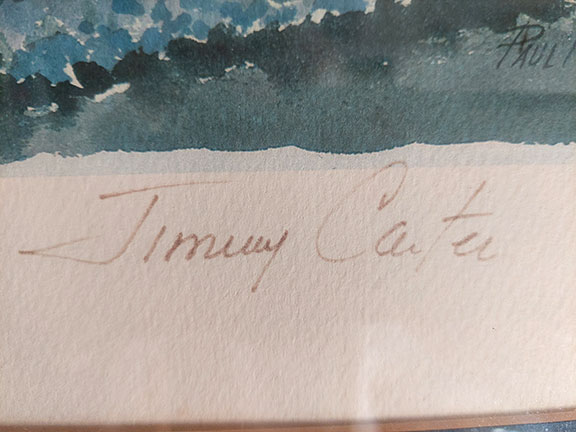 PAUL
Jimmy Carter